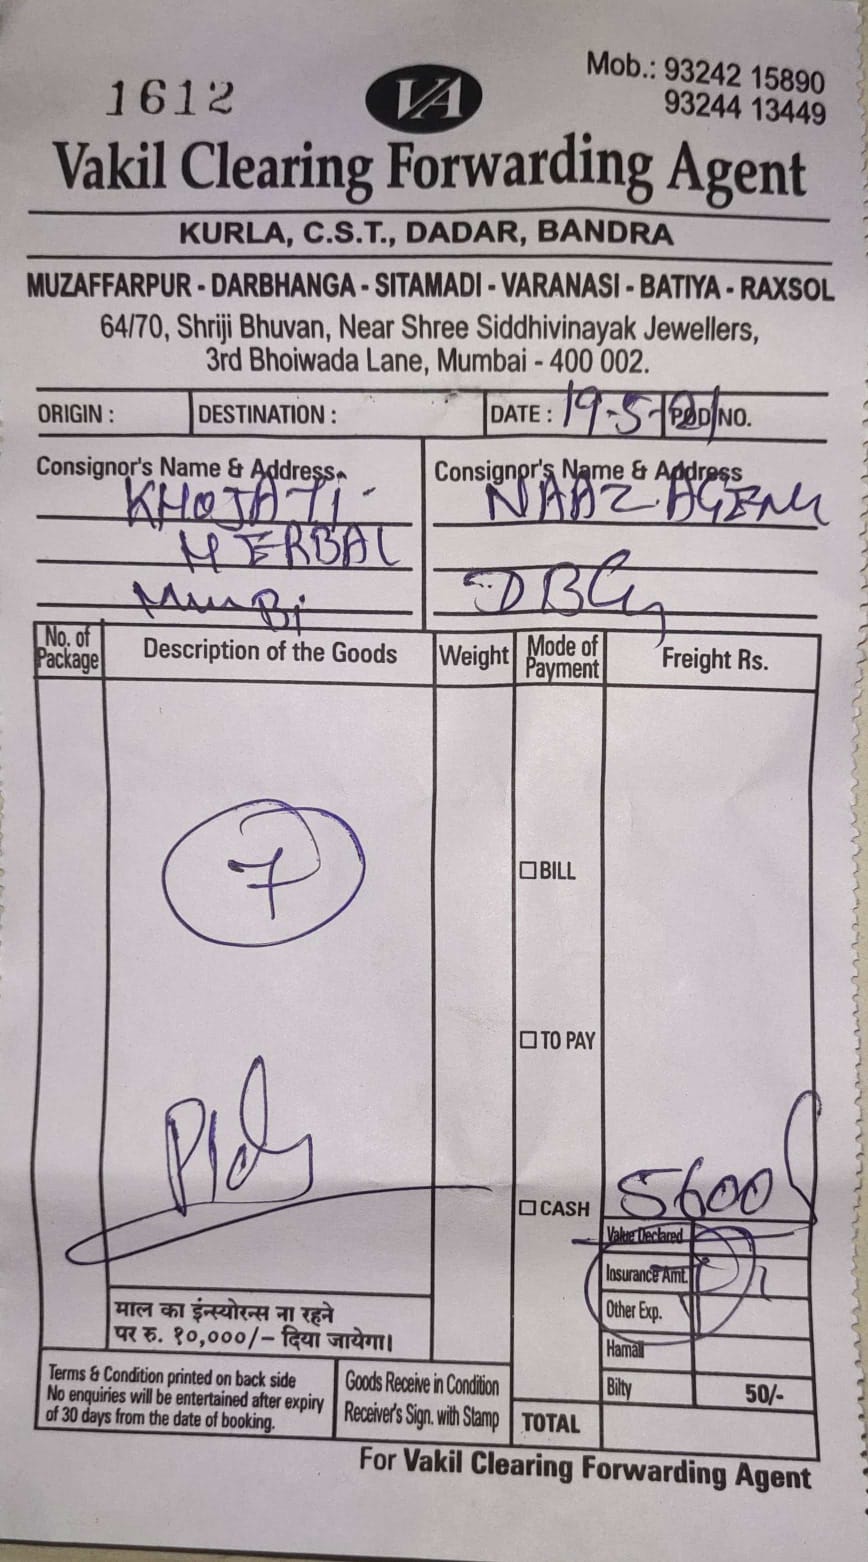 1612
VA
Mob.: 93242 15890
93244 13449
Vakil Clearing Forwarding Agent
KURLA, C.S.T., DADAR, BANDRA
MUZAFFARPUR - DARBHANGA - SITAMADI - VARANASI - BATIYA - RAXSOL
64/70, Shriji Bhuvan, Near Shree Siddhivinayak Jewellers,
3rd Bhoiwada Lane, Mumbai - 400 002.
ORIGIN : DESTINATION : DATE : 19-5- POD NO.
Consignor's Name & Address Consignor's Name & Address
KHOJATI NAAZ
HERBAL
DBG
No. of Package Description of the Goods Weight Mode of Payment Freight Rs.
7
BILL
TO PAY
CASH 5600
Value Declared
Insurance Amt.
Other Exp.
Hamali
Bilty 50/-
माल का इंन्स्योरन्स ना रहने
पर रु. १०,०००/– दिया जायेगा।
Terms & Condition printed on back side
No enquiries will be entertained after expiry
of 30 days from the date of booking.
Goods Receive in Condition
Receiver's Sign. with Stamp
TOTAL
For Vakil Clearing Forwarding Agent